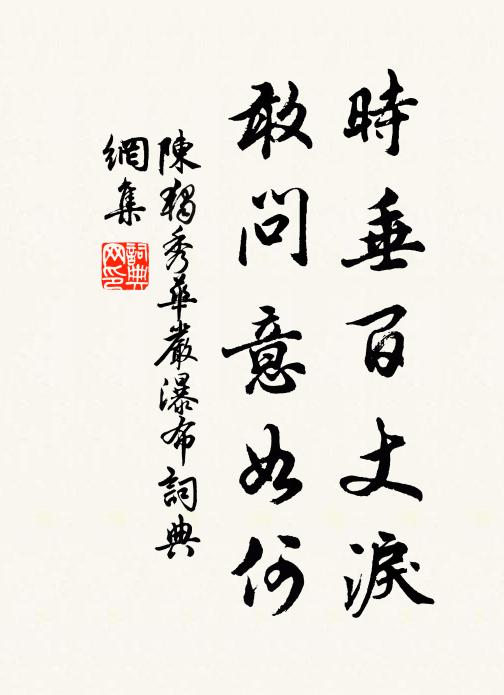 時垂百丈淚
敢問意如何
陳獨秀華嚴瀑布詞典
網集
詞典網印